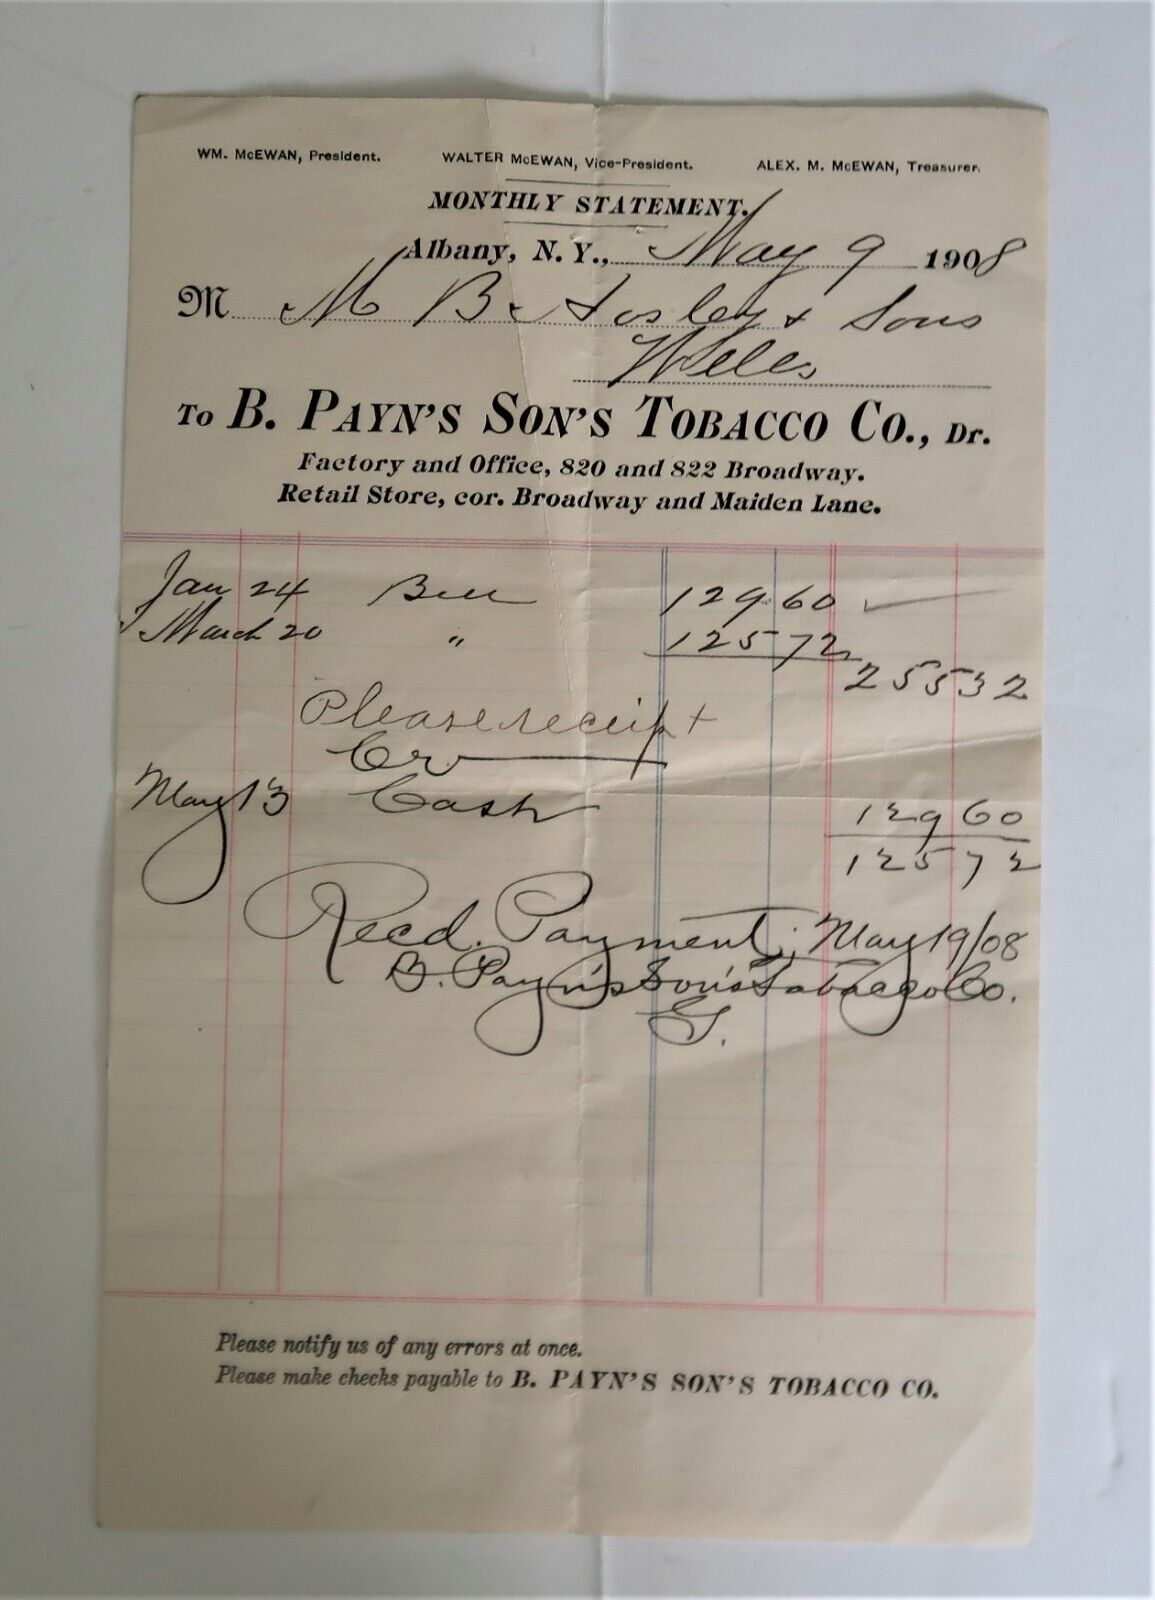 WM. McEWAN, President. WALTER McEWAN, Vice-President. ALEX. M. McEWAN, Treasurer.
MONTHLY STATEMENT.
Albany, N. Y., May 9 1908
M M B Hosley & Sons
Wells
To B. PAYN'S SON'S TOBACCO CO., Dr.
Factory and Office, 820 and 822 Broadway.
Retail Store, cor. Broadway and Maiden Lane.
Jan 24 Bill 129 60
March 20 " 125 72
255 32
Please receipt
Cr
May 13 Cash 129 60
125 72
Recd. Payment, May 19/08
B. Payn's Son's Tobacco Co.
G.
Please notify us of any errors at once.
Please make checks payable to B. PAYN'S SON'S TOBACCO CO.